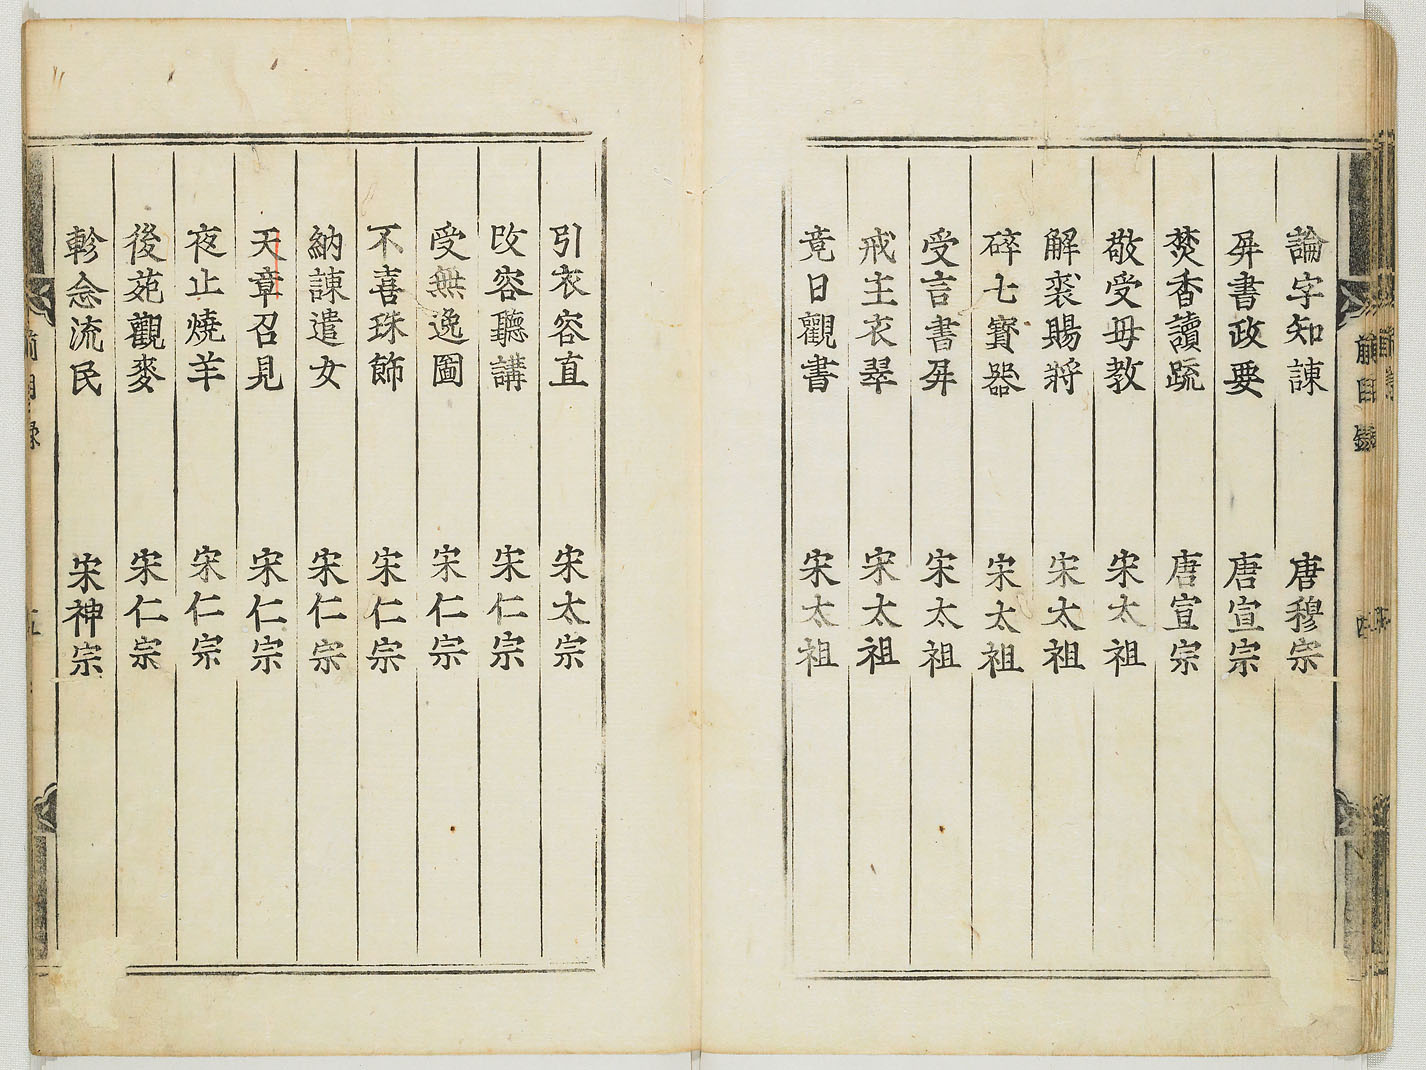 論字知諫 唐穆宗
屛書政要 唐宣宗
焚香讀疏 唐宣宗
敬受毋教 宋太祖
解裘賜將 宋太祖
碎七寶器 宋太祖
受言書屛 宋太祖
戒主衣翠 宋太祖
竟日觀書 宋太祖
引衣容直 宋太宗
改容聽講 宋仁宗
受無逸圖 宋仁宗
不喜珠飾 宋仁宗
納諫遣女 宋仁宗
天章召見 宋仁宗
夜止燒羊 宋仁宗
後苑觀麥 宋仁宗
軫念流民 宋神宗